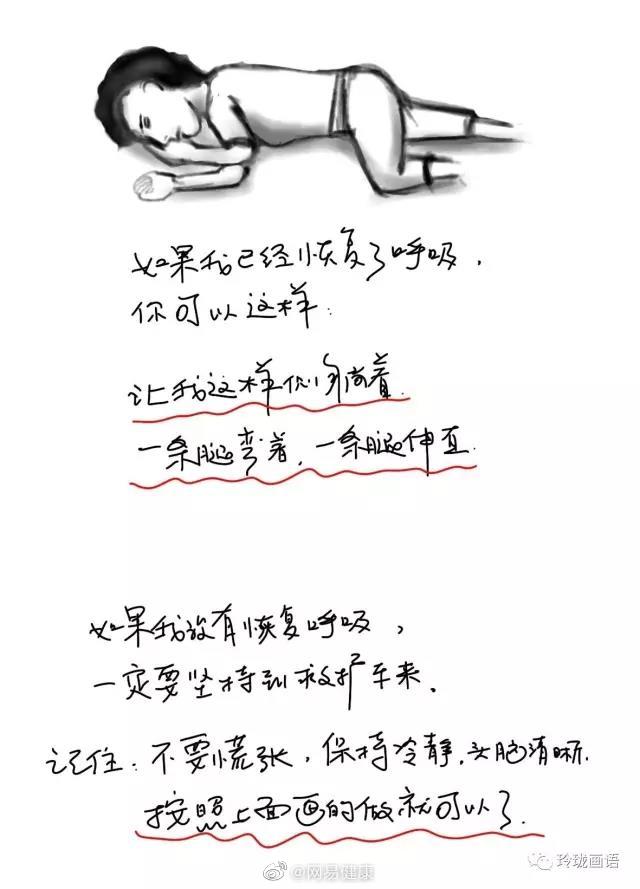 如果我已经恢复了呼吸，
你可以这样：
让我这样侧躺着.
一条腿弯着，一条腿伸直.
如果我没有恢复呼吸，
一定要坚持到救护车来.
记住：不要慌张，保持冷静，头脑清晰.
按照上面画的做就可以了.
@网易健康
玲珑画语